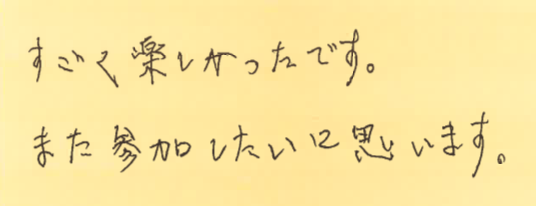 すごく楽しかったです。
また参加したいと思います。